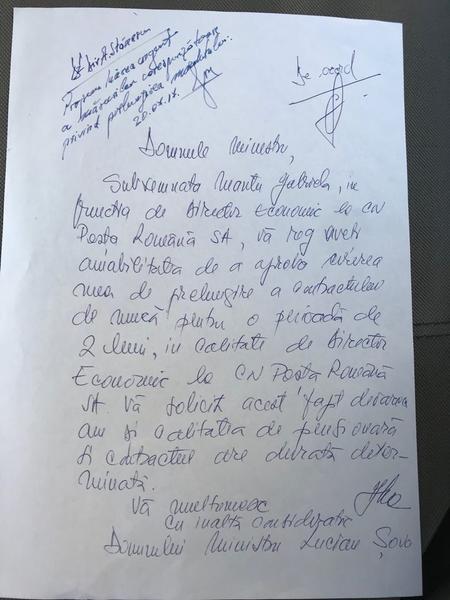 Dir. A. Stănescu
urgentă
a măsurilor corespunzătoare
privind prelungirea mandatului.
20.07.17.
De acord
Domnule Ministru,
Subsemnata Mantu Gabriela, in
funcția de Director Economic la CN
Poșta Română SA, vă rog aveți
amabilitatea de a aproba cererea
mea de prelungire a contractului
de muncă pentru o perioadă de
2 luni, in calitate de Director
Economic la CN Poșta Română
SA. Vă solicit acest fapt deoarece
am și calitatea de pensionară
și contractul are durată deter-
minată.
Vă multumesc
Cu inaltă consideratie
Domnului Ministru Lucian Șova